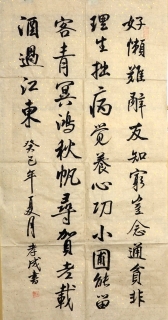 好懒难辞友知穷岂念通贫非
理生拙病觉養心功小圃能留
客青冥鴻秋帆尋賀老載
酒過江東癸巳年夏月孝成書